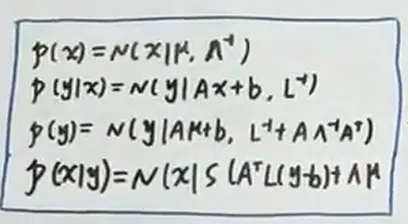 p(x) = N(x|μ, Λ⁻¹)
p(y|x) = N(y|Ax+b, L⁻¹)
p(y) = N(y|Aμ+b, L⁻¹+AΛ⁻¹Aᵀ)
p(x|y) = N(x|S(AᵀL(y-b)+Λμ